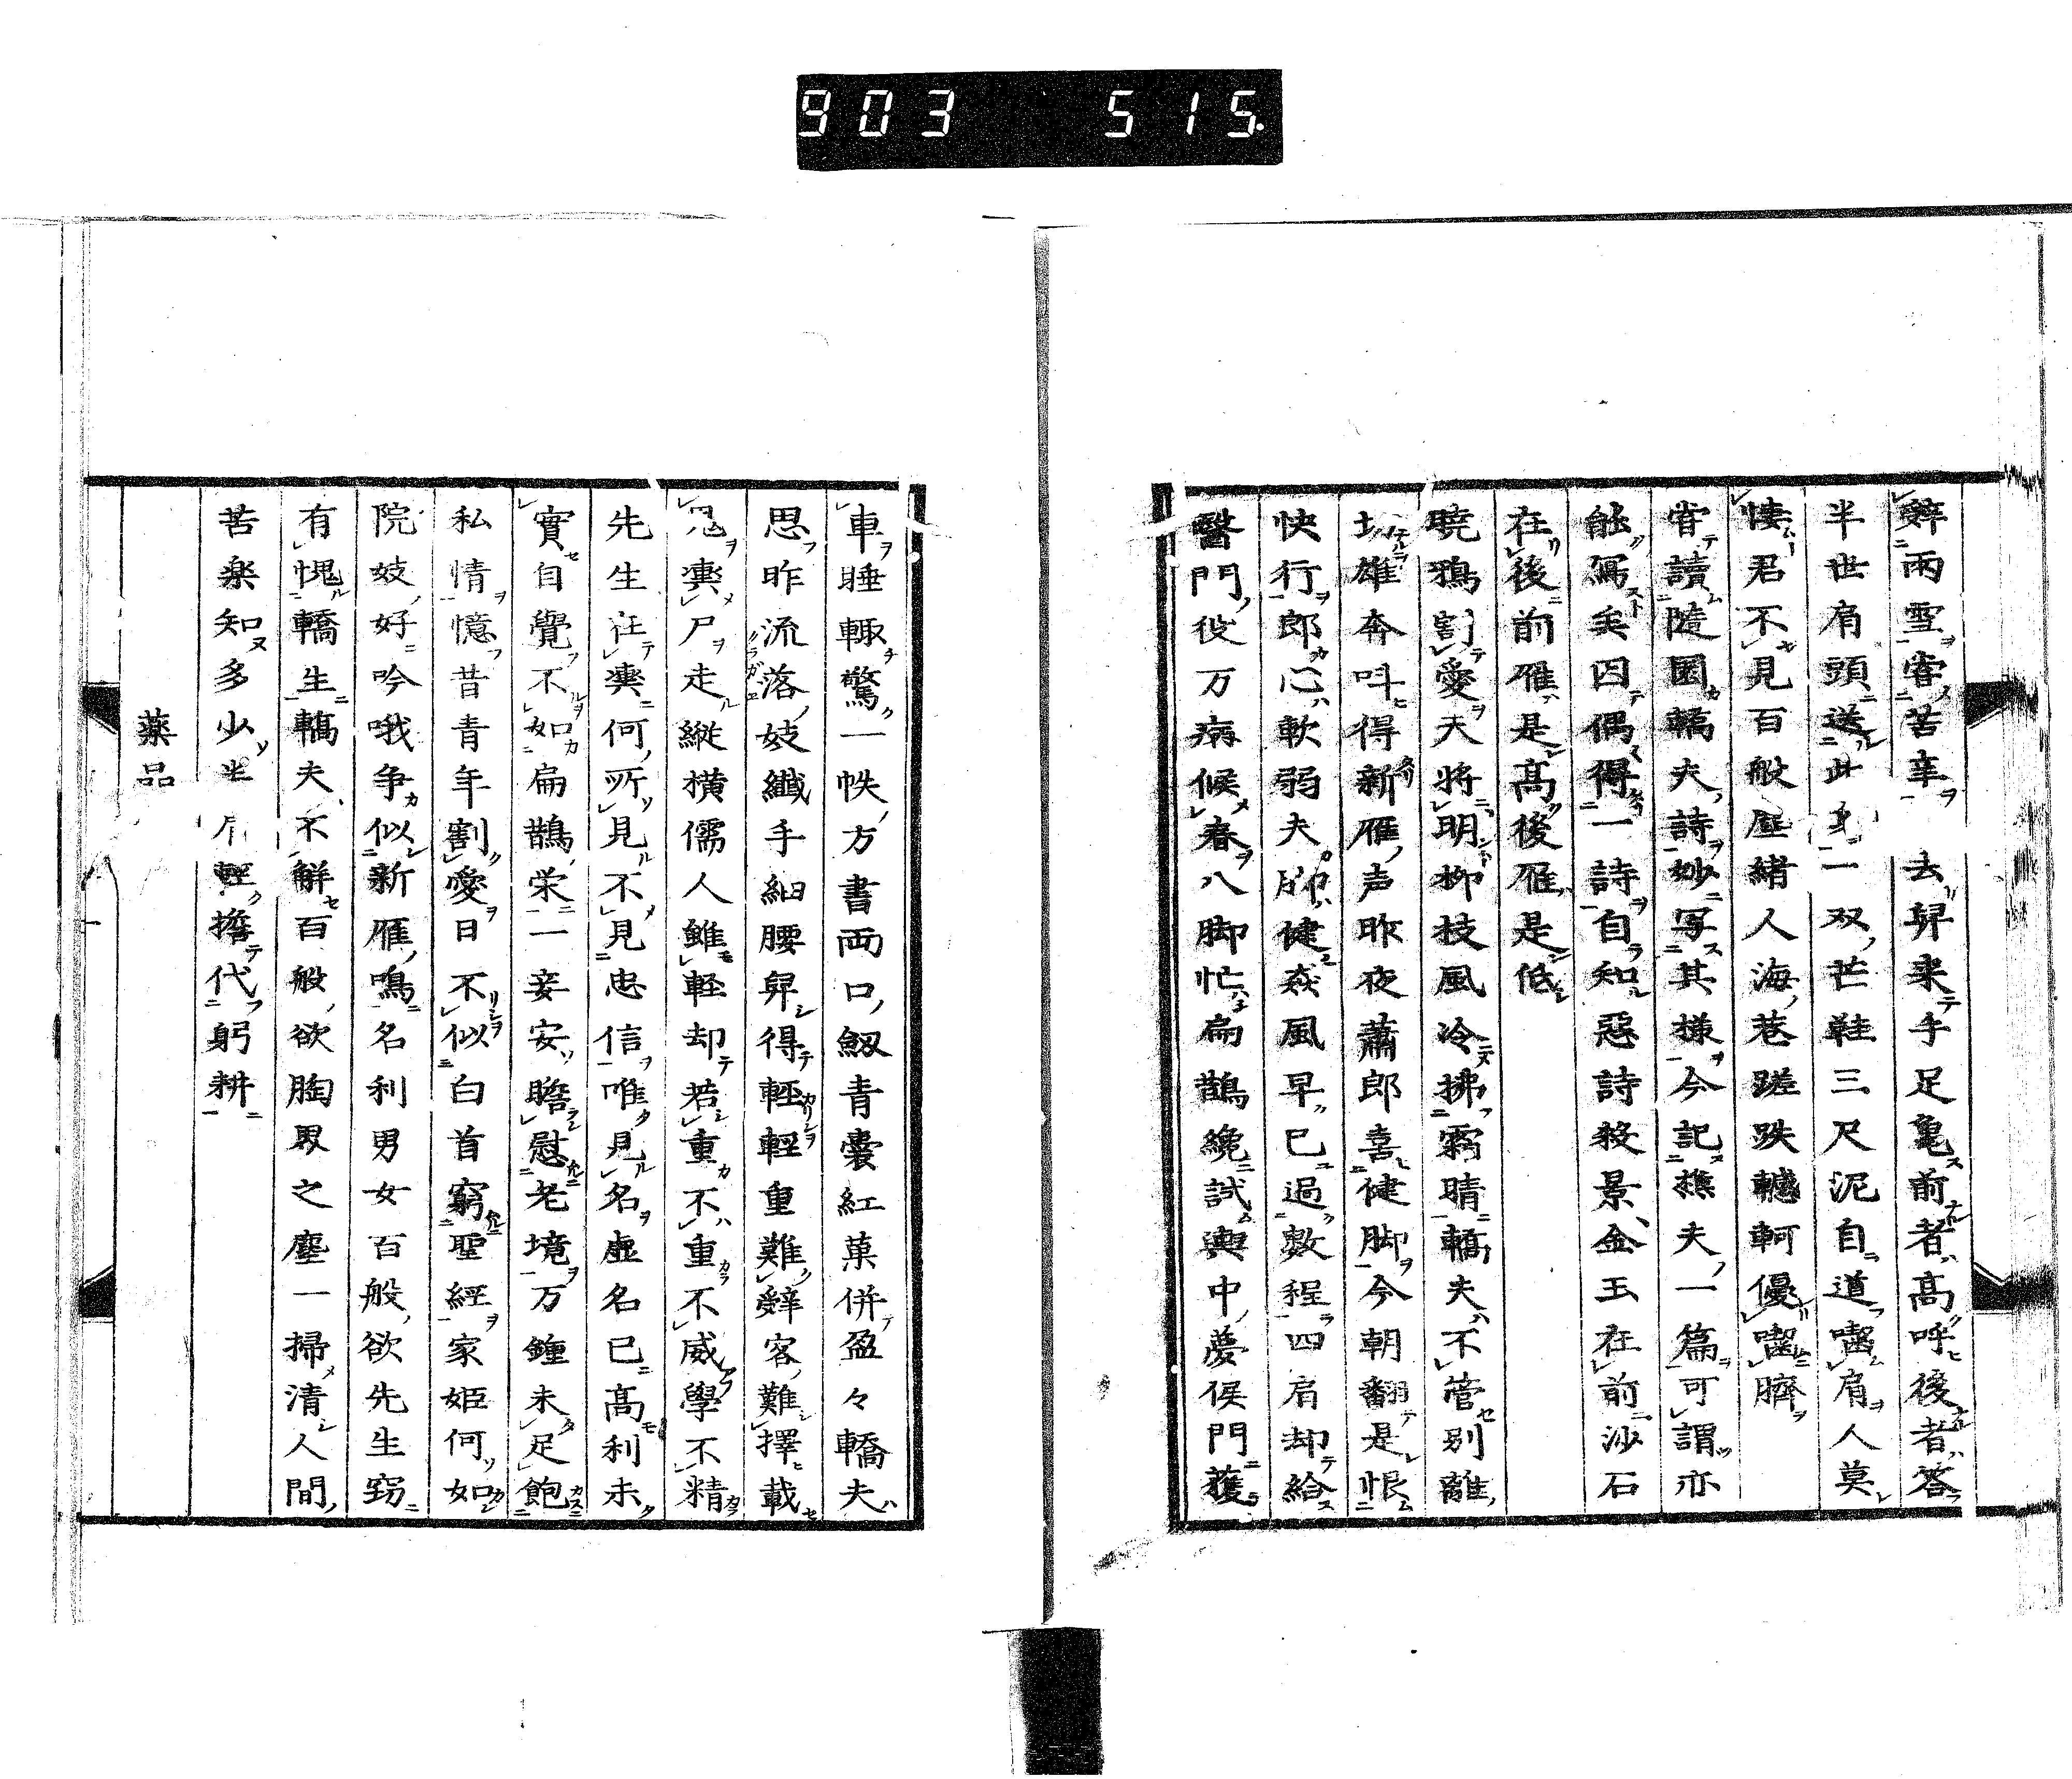 903 515.
辭雨雪窘苦辛去舁来手足亀前者高呼後者答
半世肩頭送此身一双芒鞋三尺泥自道噛肩人莫
悽君不見百般屈緒人海巷蹉跌轗軻優噛臍
嘗讀隨園轎夫詩妙写其様今記樵夫一篇可謂亦
能写矣因偶得一詩自知惡詩殺景金玉在前沙石
在後前雁是高後雁是低
曉鴉割愛天將明柳枝風冷拂霧晴轎夫不管别離
切雄奔呌得新雁声昨夜蕭郎喜健脚今朝翻是恨
快行郎心軟弱夫脚健猋風早已過數程四肩却給
醫門役万病候春八脚忙扁鵲纔試輿中夢侯門獲
車睡輙驚一帙方書両口劔青嚢紅菓併盈々轎夫
思昨流落妓纖手細腰舁得輕輕重難辭客難擇載
鬼輿尸走縦横儒人雖軽却若重不重不威學不精
先生在輿何所見不見忠信唯見名虚名已高利未
實自覺不如扁鵲栄一妾安瞻慰老境万鍾未足飽
私情憶昔青年割愛日不似白首窮聖經家姫何如
院妓好吟哦争似新雁鳴名利男女百般欲先生窃
有愧轎生轎夫不解百般欲胸裏之塵一掃清人間
苦楽知多少半肩輕擔代躬耕
薬品